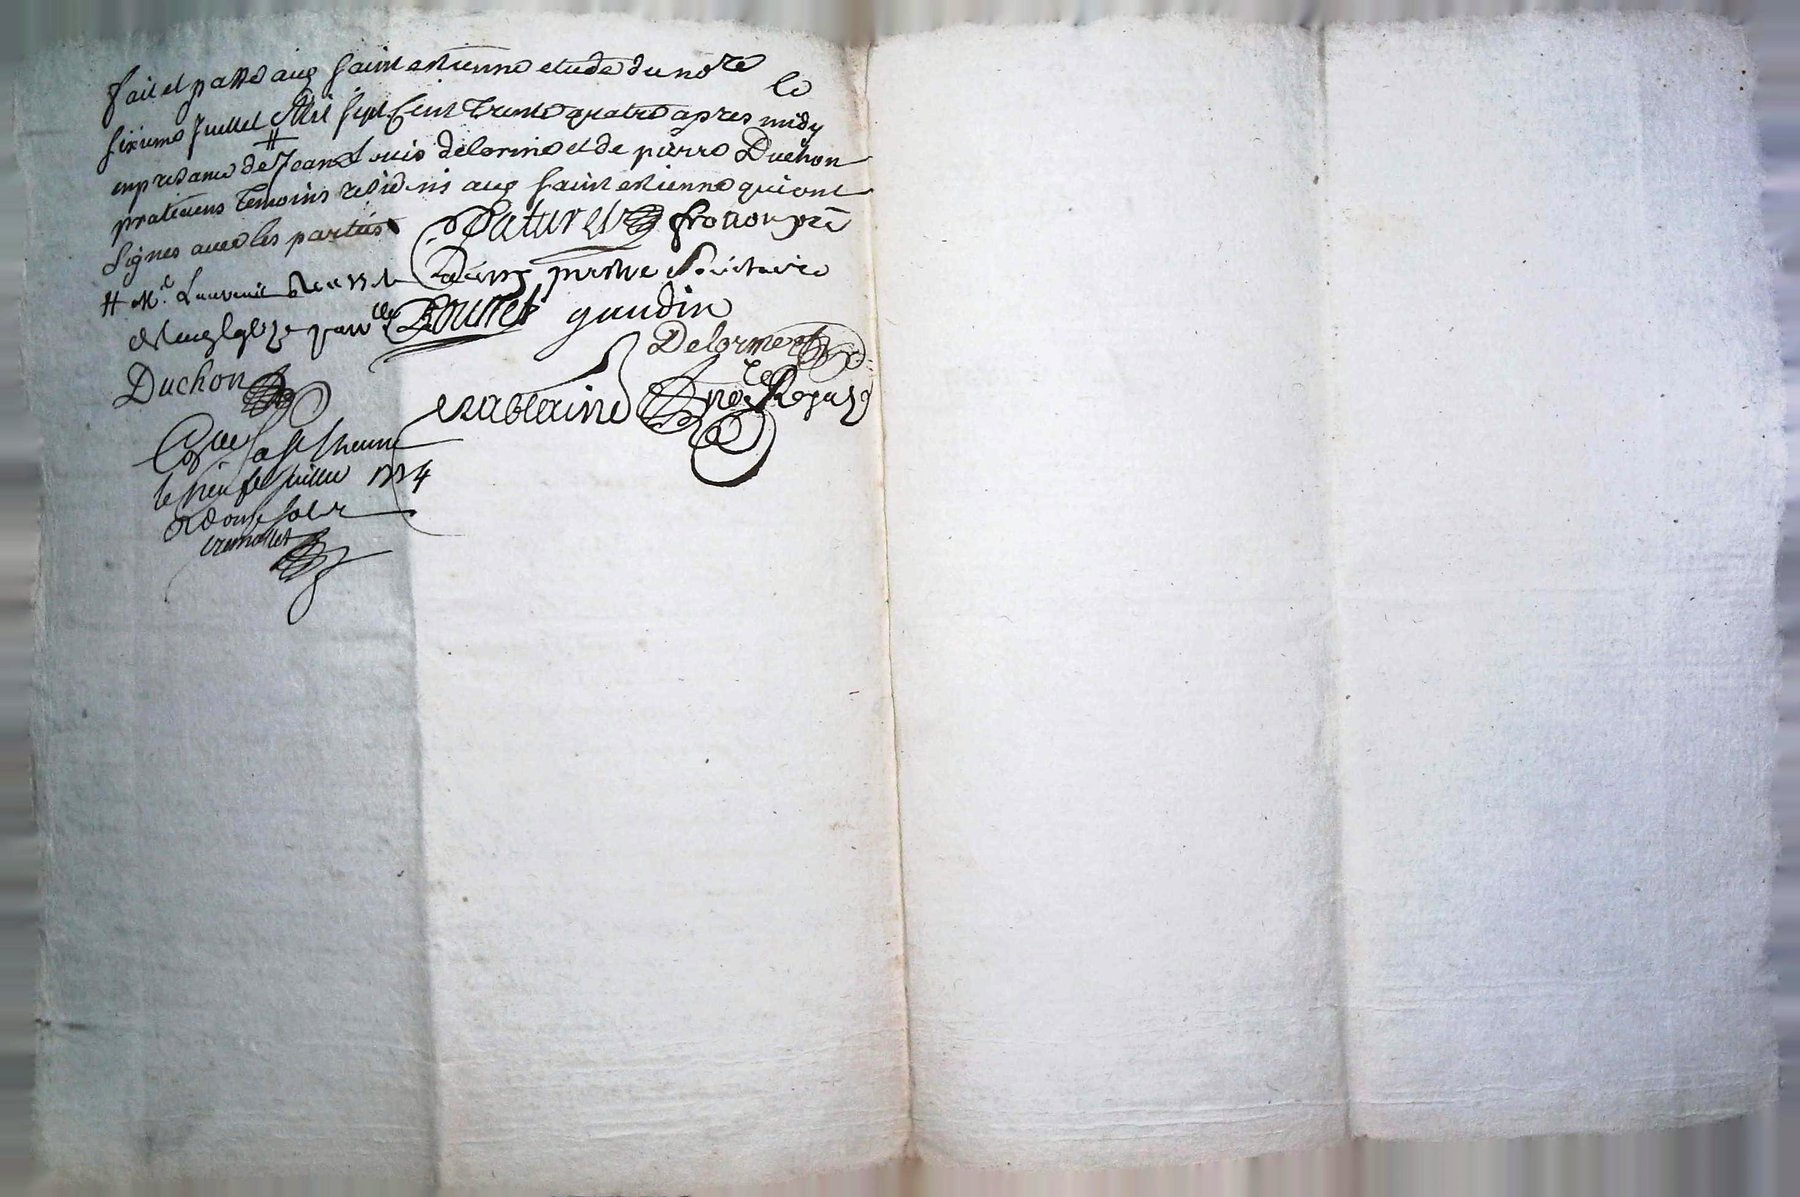 fait et passé aud saint estienne etude du no.re le
sixieme Juillet Mil sept Cent Trente quatre apres midy
en presance de # Jean Louis delorme et de pierre Duchon
praticiens temoins residens aud saint estienne qui ont
signes avec les parties
paturel fronton pre
# Mr. Laurent
prestre Societaire
Bounet gaudin
Delorme
Duchon
erablaine no.re Royal
Con.lé a St Etienne
le neuf juillet 1734
R douze sols